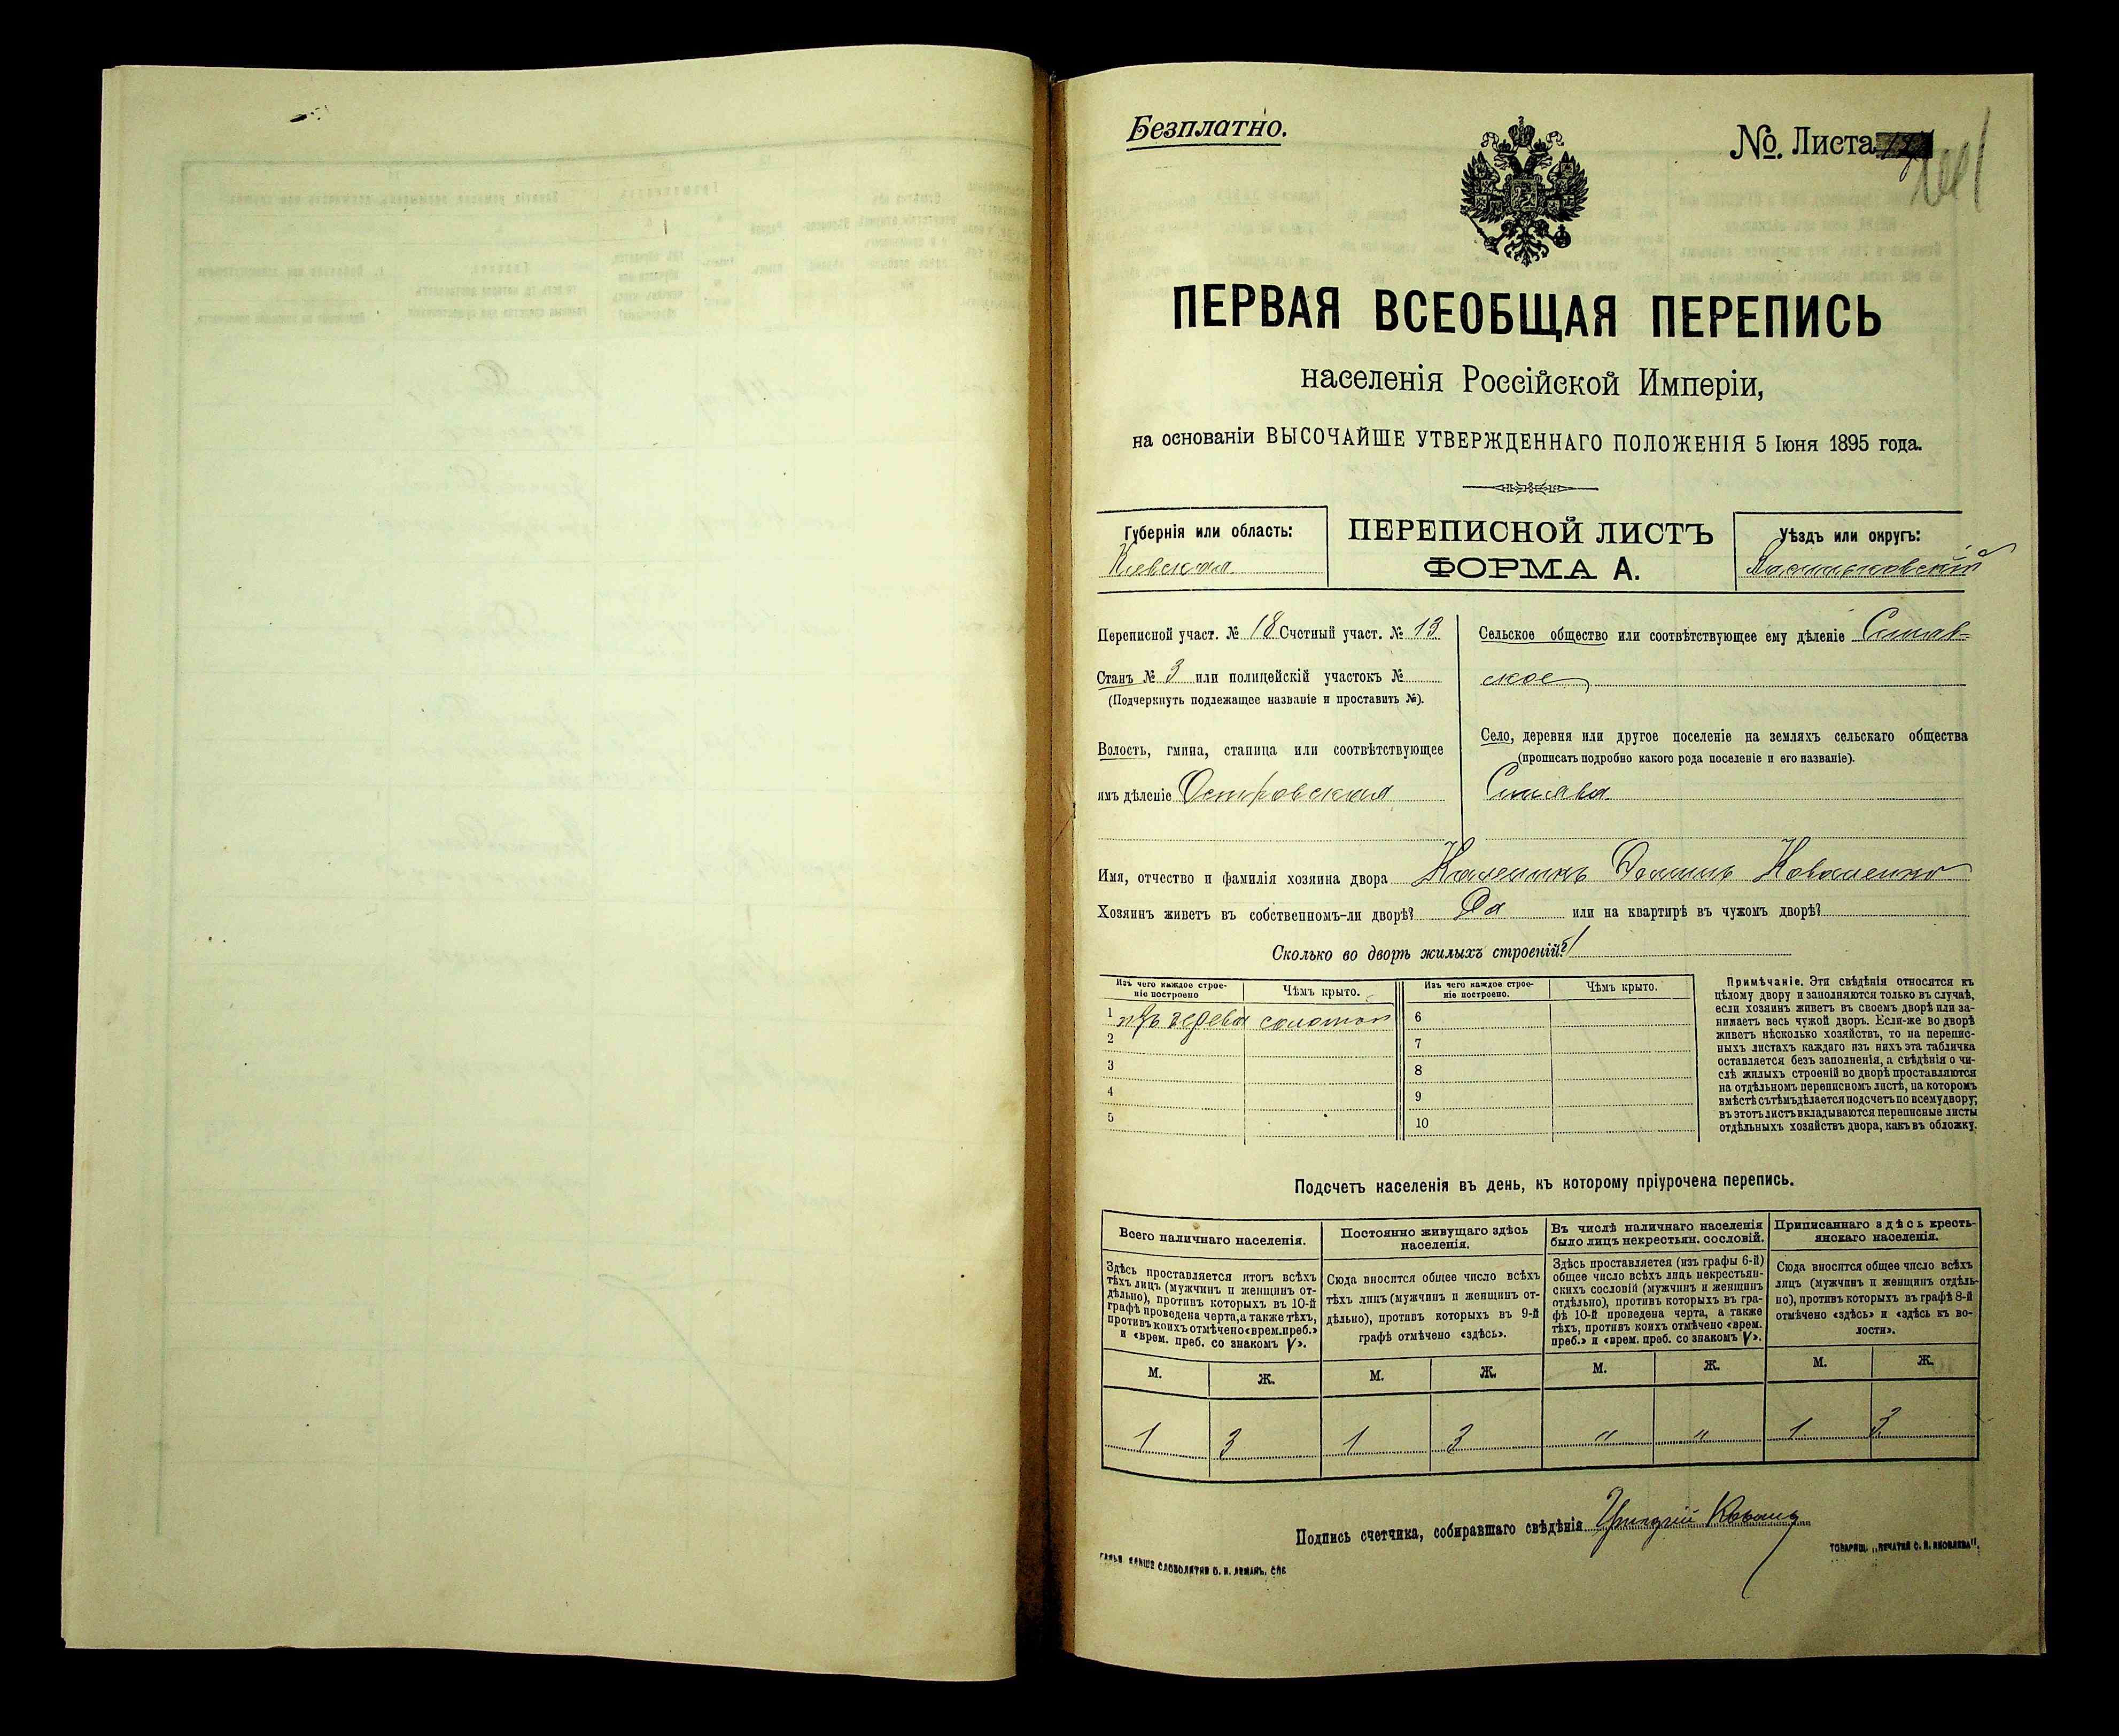 Безплатно.
№ Листа
ПЕРВАЯ ВСЕОБЩАЯ ПЕРЕПИСЬ
населенія Россійской Имперіи,
на основаніи ВЫСОЧАЙШЕ УТВЕРЖДЕННАГО ПОЛОЖЕНІЯ 5 Іюня 1895 года.
Губернія или область:
Кіевская
ПЕРЕПИСНОЙ ЛИСТЪ
ФОРМА А.
Уѣздъ или округъ:
Васильковскій
Переписной участ. № 18 Счетный участ. № 13
Станъ № 3 или полицейскій участокъ №
(Подчеркнуть подлежащее названіе и проставить №).
Волость, гмина, станица или соотвѣтствующее
имъ дѣленіе Островская
Сельское общество или соотвѣтствующее ему дѣленіе Синяв-
ское
Село, деревня или другое поселеніе на земляхъ сельскаго общества
(прописать подробно какого рода поселеніе и его названіе).
Синява
Имя, отчество и фамилія хозяина двора Коваленко
Хозяинъ живетъ въ собственномъ-ли дворѣ? Да или на квартирѣ въ чужомъ дворѣ?
Сколько во дворѣ жилыхъ строеній? 1
Изъ чего каждое строе-
ніе построено
Чѣмъ крыто.
Изъ чего каждое строе-
ніе построено.
Чѣмъ крыто.
1 изъ дерева соломой
2
3
4
5
6
7
8
9
10
Примѣчаніе. Эти свѣдѣнія относятся къ
цѣлому двору и заполняются только въ случаѣ,
если хозяинъ живетъ въ своемъ дворѣ или за-
нимаетъ весь чужой дворъ. Если-же во дворѣ
живетъ нѣсколько хозяйствъ, то на перепис-
ныхъ листахъ каждаго изъ нихъ эта табличка
оставляется безъ заполненія, а свѣдѣнія о чи-
слѣ жилыхъ строеній во дворѣ проставляются
на отдѣльномъ переписномъ листѣ, на которомъ
вмѣстѣ съ тѣмъ дѣлается подсчетъ по всему двору;
въ этотъ листъ вкладываются переписные листы
отдѣльныхъ хозяйствъ двора, какъ въ обложку.
Подсчетъ населенія въ день, къ которому пріурочена перепись.
Всего наличнаго населенія.
Здѣсь проставляется итогъ всѣхъ
тѣхъ лицъ (мужчинъ и женщинъ от-
дѣльно), противъ которыхъ въ 10-й
графѣ проведена черта, а также тѣхъ,
противъ коихъ отмѣчено «врем. преб.»
и «врем. преб. со знакомъ V».
Постоянно живущаго здѣсь
населенія.
Сюда вносится общее число всѣхъ
тѣхъ лицъ (мужчинъ и женщинъ от-
дѣльно), противъ которыхъ въ 9-й
графѣ отмѣчено «здѣсь».
Въ числѣ наличнаго населенія
было лицъ некрестьян. сословій.
Здѣсь проставляется (изъ графы 6-й)
общее число всѣхъ лицъ некрестьян-
скихъ сословій (мужчинъ и женщинъ
отдѣльно), противъ которыхъ въ гра-
фѣ 10-й проведена черта, а также
тѣхъ, противъ коихъ отмѣчено «врем.
преб.» и «врем. преб. со знакомъ V».
Приписаннаго здѣсь кресть-
янскаго населенія.
Сюда вносится общее число всѣхъ
лицъ (мужчинъ и женщинъ отдѣль-
но), противъ которыхъ въ графѣ 8-й
отмѣчено «здѣсь» и «здѣсь къ во-
лости».
М. Ж. М. Ж. М. Ж. М. Ж.
1 3 1 3 " " 1 3
Подпись счетчика, собиравшаго свѣдѣнія
СЛОВОЛИТНИ О. И. ЛЕМАНЪ, СПБ
ТОВАРИЩ. „ПЕЧАТНЯ С. П. ЯКОВЛЕВА".